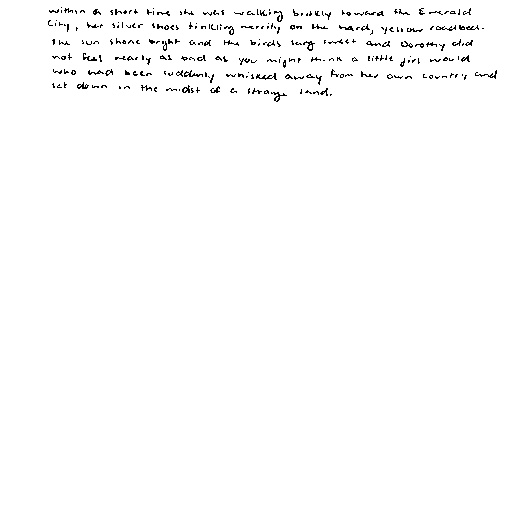 within a short time she was walking briskly toward the Emerald
City, her silver shoes tinkling merrily on the hard, yellow roadbed.
The sun shone bright and the birds sang sweet and Dorothy did
not feel nearly as bad as you might think a little girl would
who had been suddenly whisked away from her own country and
set down in the midst of a strange land.